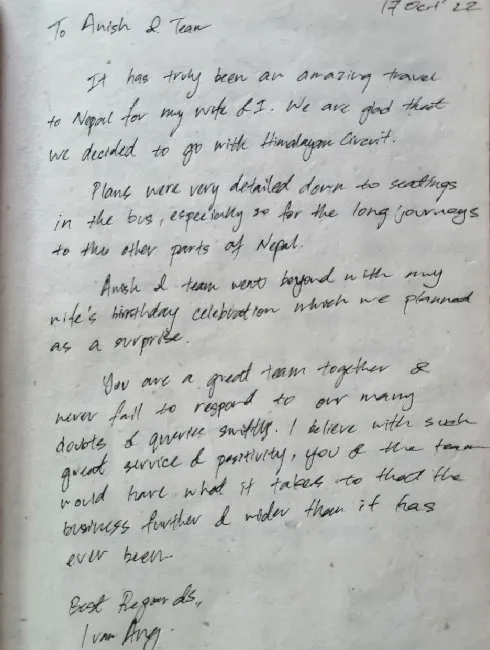 17 Oct' 22
To Anish & Team
It has truly been an amazing travel
to Nepal for my wife & I. We are glad that
we decided to go with Himalayan Circuit.
Plans were very detailed down to seatings
in the bus, especially so for the long journeys
to the other parts of Nepal.
Anish & team went beyond with my
wife's birthday celebration which we planned
as a surprise.
You are a great team together &
never fail to respond to our many
doubts & queries swiftly. I believe with such
great service & positivity, you & the team
would have what it takes to the
business further & wider than it has
ever been.
Best Regards,
Ivan Ang.